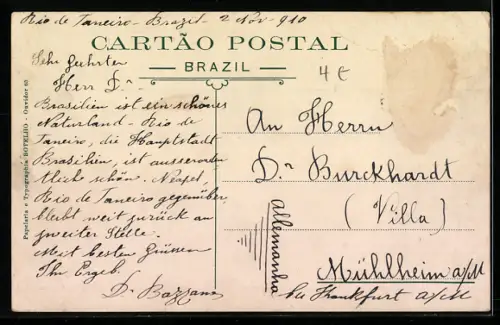 Rio de Janeiro - Brazil - 2 Nov. 910
CARTÃO POSTAL
BRAZIL
4 €
Sehr geehrter
Herr Dr.
Brasilien ist ein schönes
Naturland - Rio de
Janeiro, die Hauptstadt
Brasilien, ist ausserordent
liche schön. Neapel,
Rio de Janeiro gegenüber
bleibt weit zurück an
zweiter Stelle.
Mit besten Grüssen
Ihr Ergeb.
Dr.
An Herrn
Dr. Burckhardt
(Villa)
Mühlheim a/M
bei Frankfurt a/M
Allemanha
Papelaria e Typographia BOTELHO - Ouvidor 65